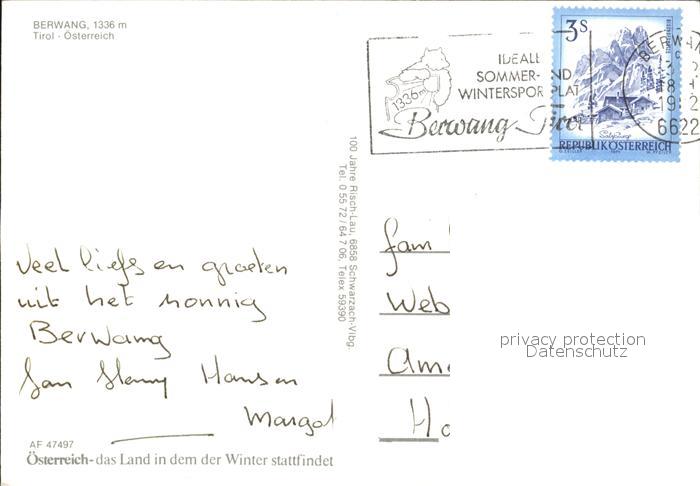 BERWANG, 1336 m
Tirol - Österreich
IDEALE
SOMMER- UND
WINTERSPORTPLATZ
1336m
Berwang Tirol
3S
Salzburg
REPUBLIK ÖSTERREICH
BERWA
6622
100 Jahre Risch-Lau, 6858 Schwarzach-Vlbg.
Tel. 0 55 72/64 7 06, Telex 59390
Veel liefs en groeten
uit het zonnig
Berwang
Jan Henny Hansen
Margot
fam
Web
Am
Ho
privacy protection
Datenschutz
AF 47497
Österreich-das Land in dem der Winter stattfindet